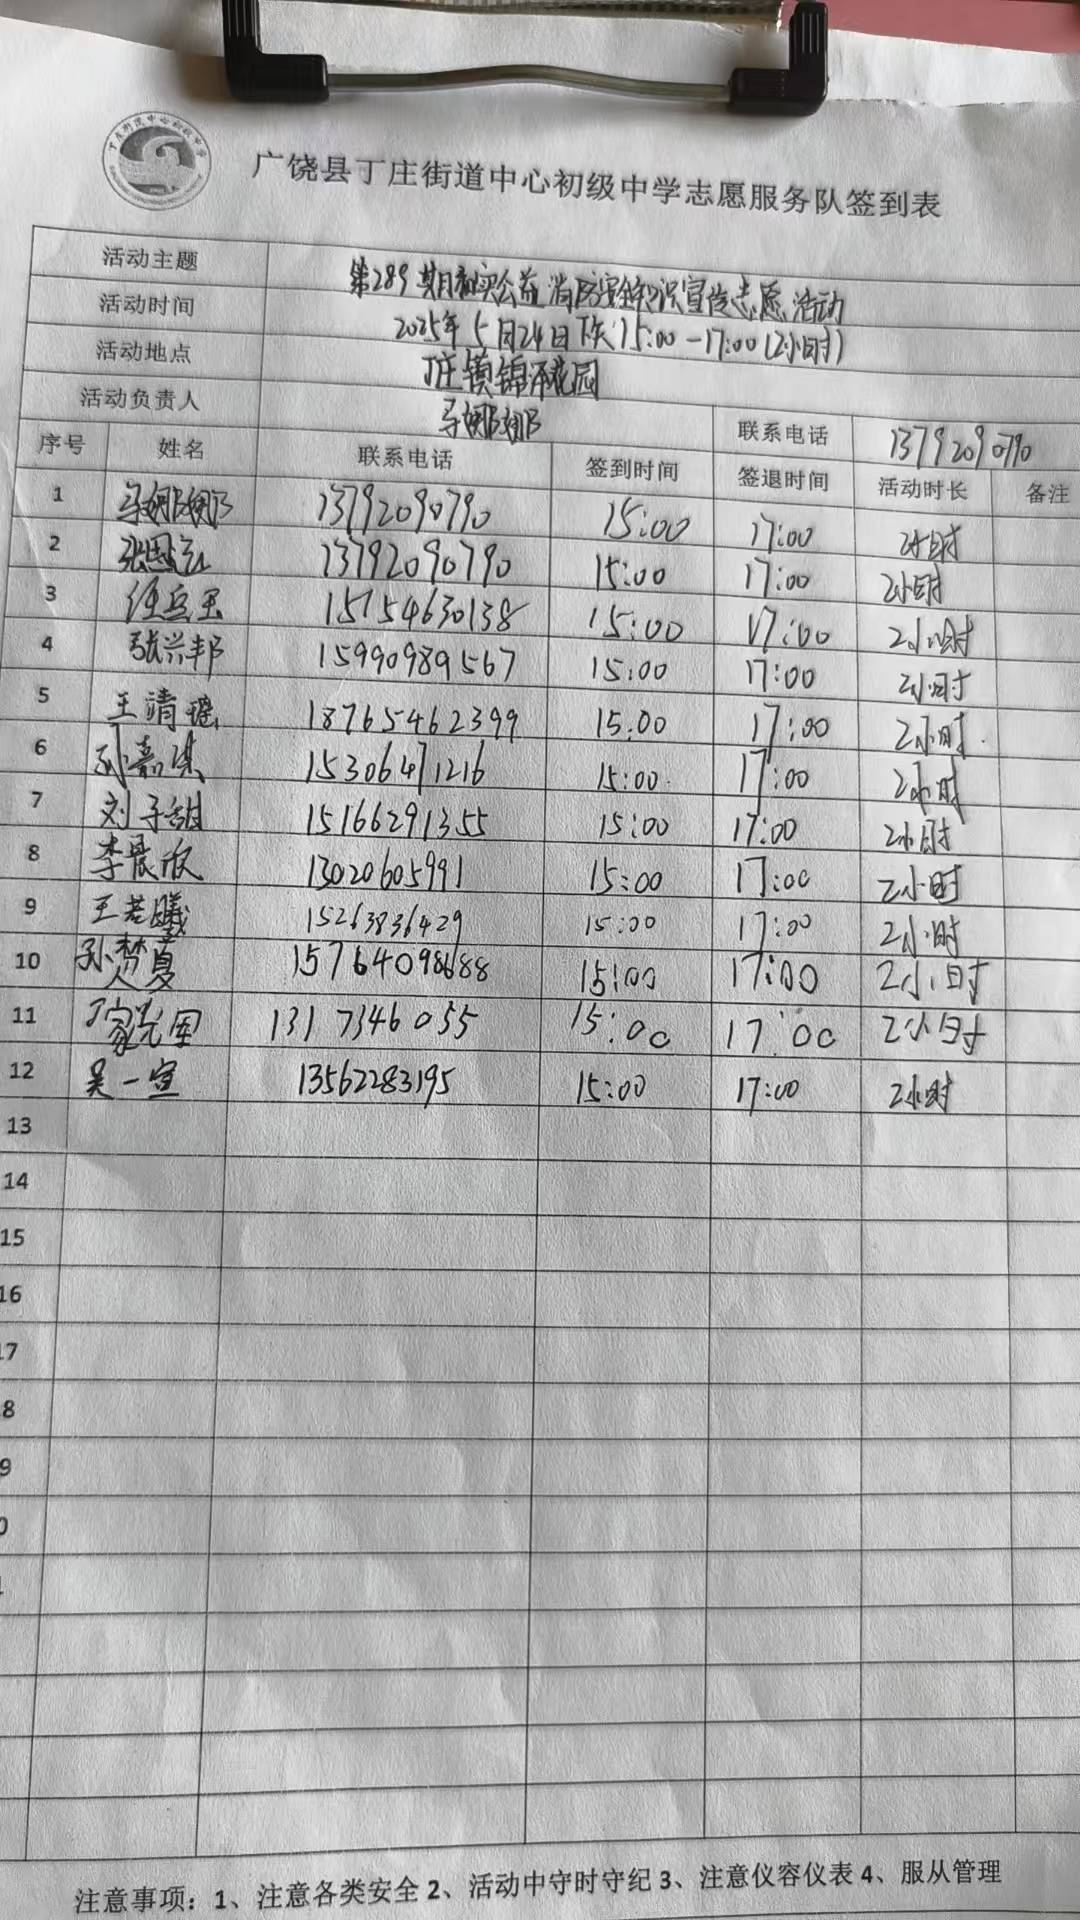 广饶县丁庄街道中心初级中学志愿服务队签到表
活动主题 第289期和实公益消防安全知识宣传志愿活动
活动时间 2025年5月24日下午15:00-17:00(2小时)
活动地点 丁庄镇锦泽花园
活动负责人 马娜娜 联系电话 13792090790
序号 姓名 联系电话 签到时间 签退时间 活动时长 备注
1 马娜娜 13792090790 15:00 17:00 2小时
2 张国 13792090790 15:00 17:00 2小时
3 任兵玉 15154630138 15:00 17:00 2小时
4 张兴邦 15990989567 15:00 17:00 2小时
5 王清瑶 18765462399 15:00 17:00 2小时
6 孙嘉淇 15306471216 15:00 17:00 2小时
7 刘子甜 15166291355 15:00 17:00 2小时
8 李晨欣 13020605991 15:00 17:00 2小时
9 王若曦 15263836429 15:00 17:00 2小时
10 孙梦夏 15764098688 15:00 17:00 2小时
11 丁家 13173460 55 15:00 17:00 2小时
12 吴一宣 13562283195 15:00 17:00 2小时
13
14
15
16
17
8
9
0
注意事项：1、注意各类安全 2、活动中守时守纪 3、注意仪容仪表 4、服从管理